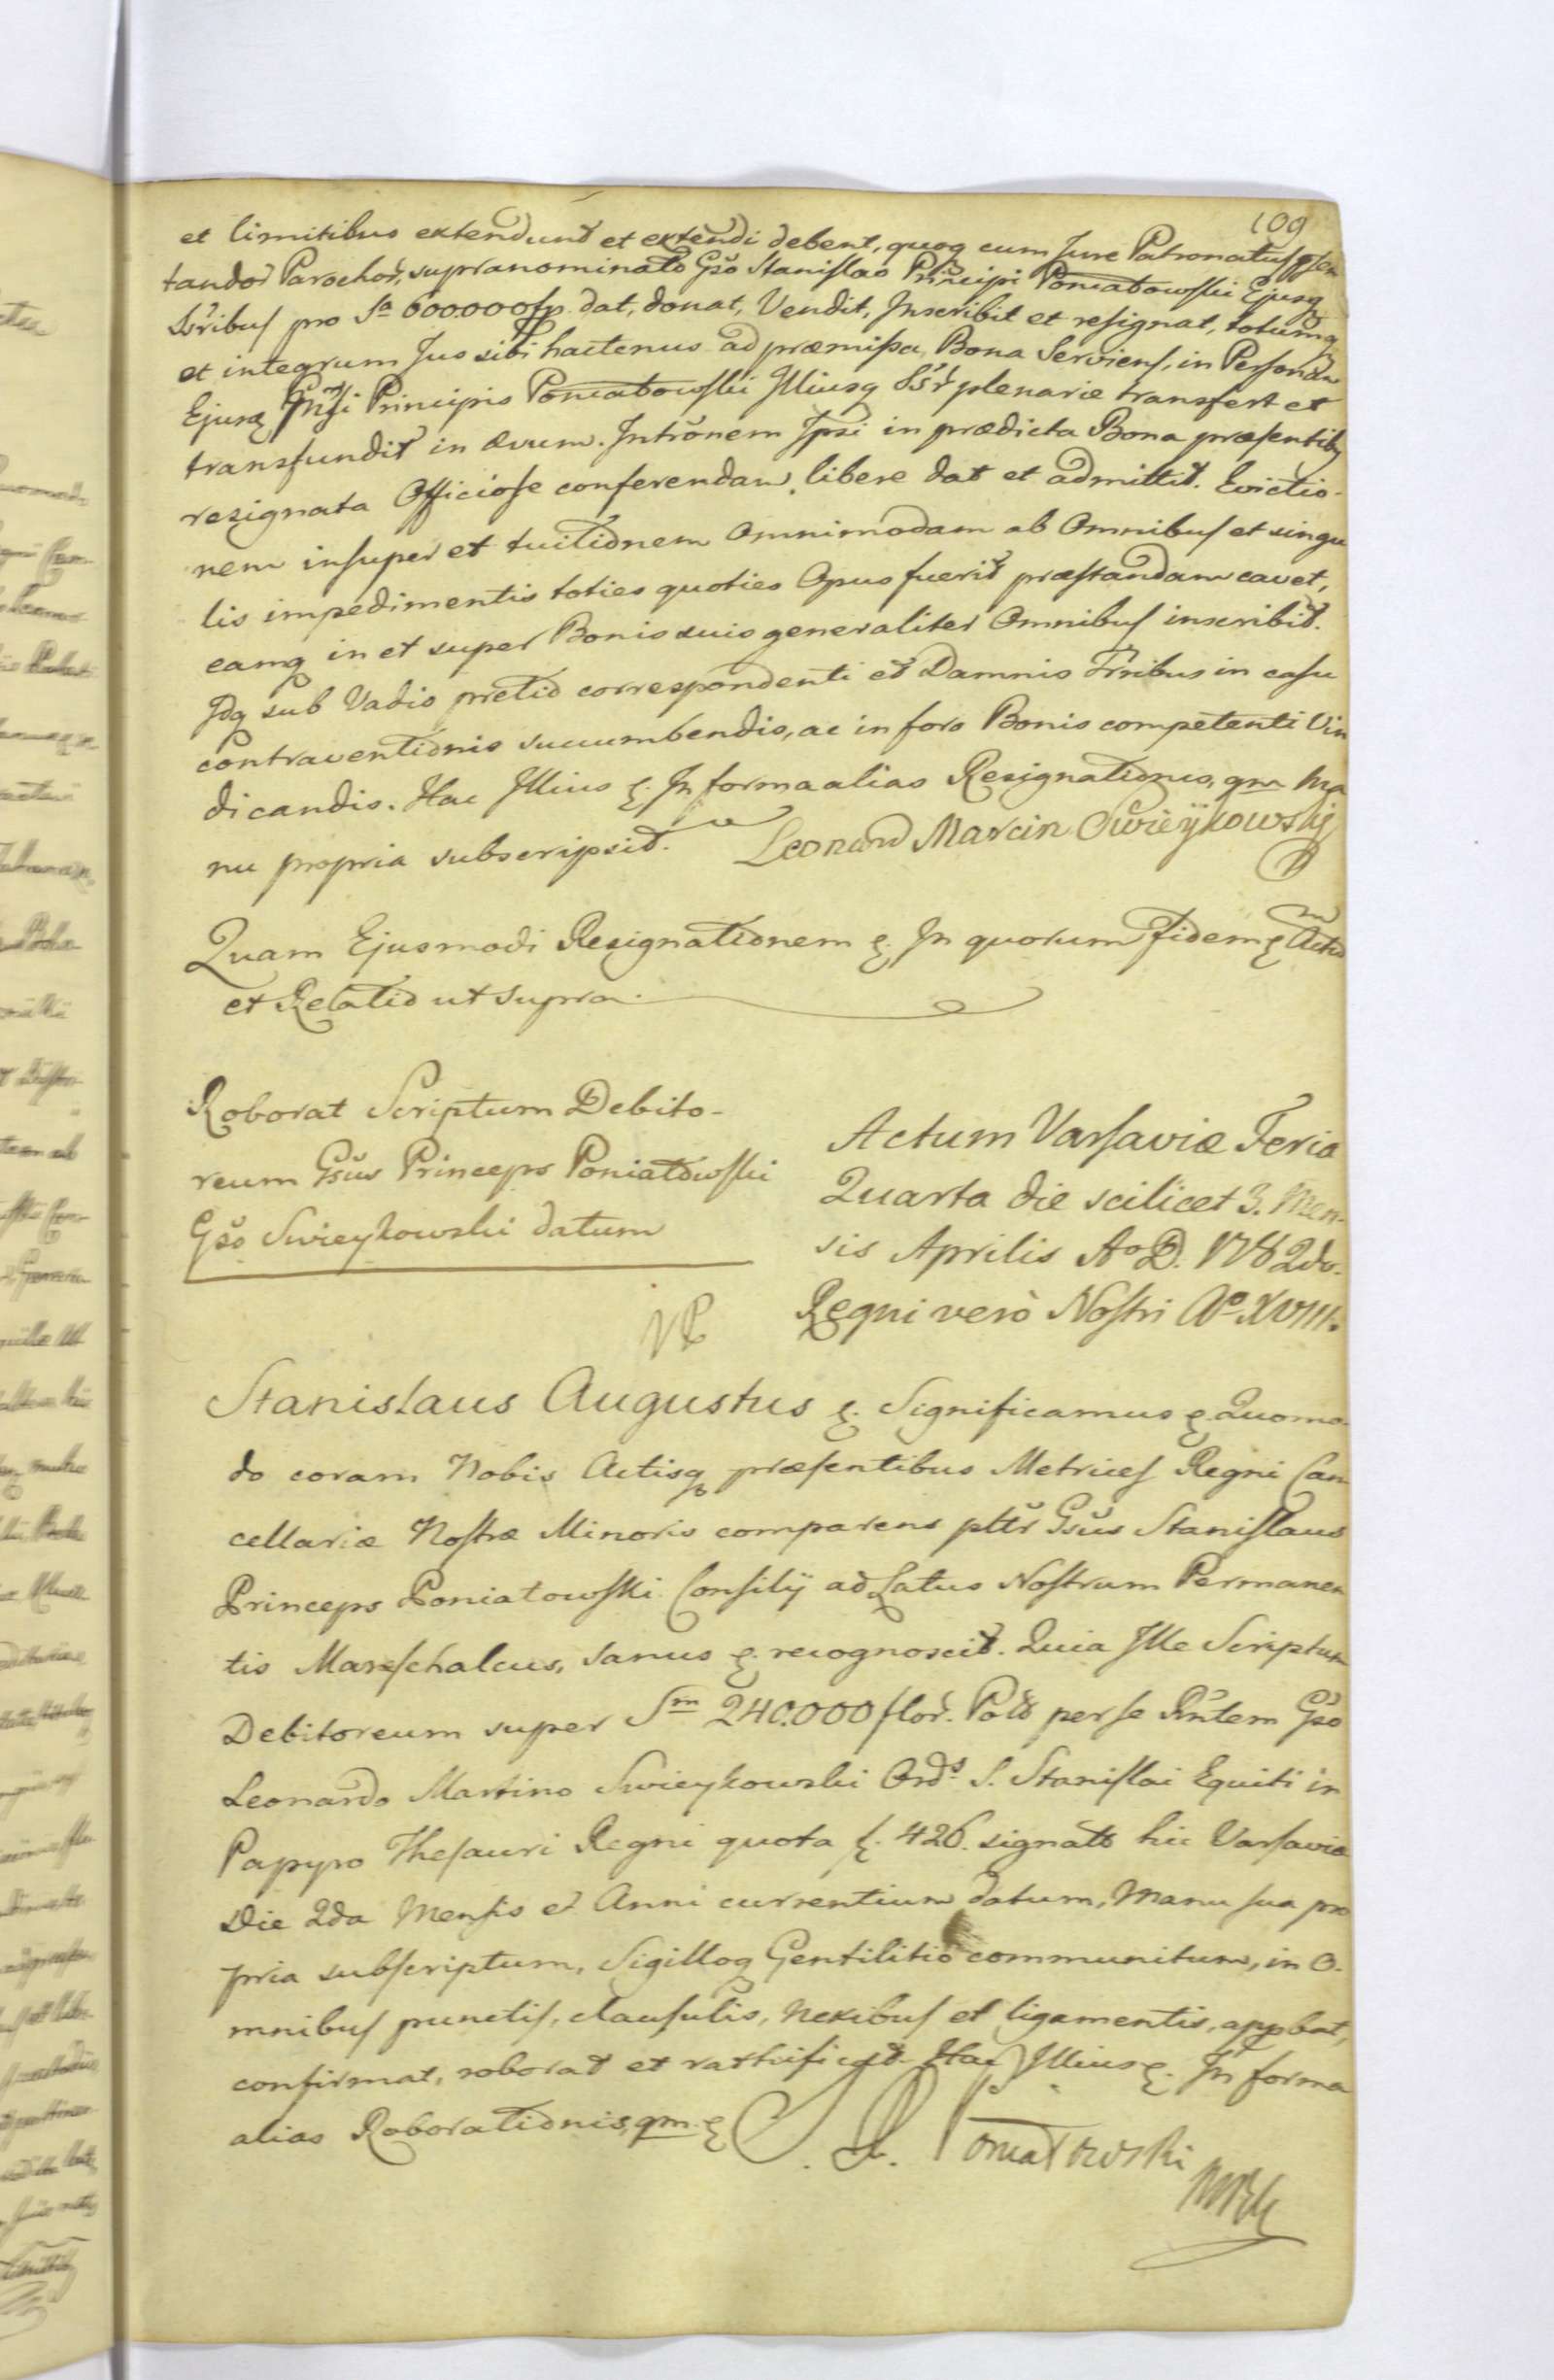 109
et limitibus extendunt et extendi debent, quoq cum Jure Patronatus psen
tandor Parochor, supranominato Gso Stanislao Principi Poniatowski Ejusq
Ssribus pro Sa 600000fp. dat, donat, Vendit, Inscribit et resignat, totumq
et integrum Jus sibi hactenus ad præmissa Bona Serviens, in Personam
Ejusq Principis Poniatowski Illiusq Ssr plenarie transfert et
transfundit in ævum. Intronem Ipsi in prædicta Bona præsentibq
resignata Officiose conferendam libere dat et admittit. Evictio-
nem insuper et tuitionem Omnimodam ab Omnibus et singu
lis impedimentis toties quoties Opus fuerit præstandam cavet,
eamq in et super Bonis suis generaliter Omnibus inscribit.
Idq sub Vadio pretio correspondenti et Damnis Trribus in casu
contraventionis succumbendis, ac in foro Bonis competenti Vin
dicandis. Hac Illius &. In forma alias Resignationis, qm Ma
nu propria subscripsit. Leonard Marcin Swieÿkowskj
Quam Ejusmodi Resignationem &. In quorum fidem & Actu
et Relatio ut supra.
Roborat Scriptum Debito-
reum Gsus Princeps Poniatowski
Gso Swieykowski datum
Actum Varsaviæ Feria
Quarta die scilicet 3. Men-
sis Aprilis Ao D. 1782do.
Regni verò Nostri Ao XVIII.
Stanislaus Augustus &. Significamus & Quomo-
do coram Nobis Actisq præsentibus Metrices Regni Can
cellariæ Nostræ Minoris comparens pltr Gsus Stanislaus
Princeps Poniatowski Consilÿ ad Latus Nostrum Permanen
tis Mareschalcus, sanus &. recognoscit. Quia Ille Scriptum
Debitoreum super Sm 240.000 flor. Pol perse Rntem Gso
Leonardo Martino Swieykowski Ords S. Stanislai Equiti in
Papyro Thesauri Regni quota f. 426. signato hic Varsaviæ
Die 2da Mensis et Anni currentium datum, Manu sua pro
pria subscriptum, Sigilloq Gentilitio communitum, in O-
mnibus punctis, clausulis, nexibus et ligamentis, appbat,
confirmat, roborat et rathificat. Hac Illius &. In forma
alias Roborationis, qm. & S. X. Poniatowski